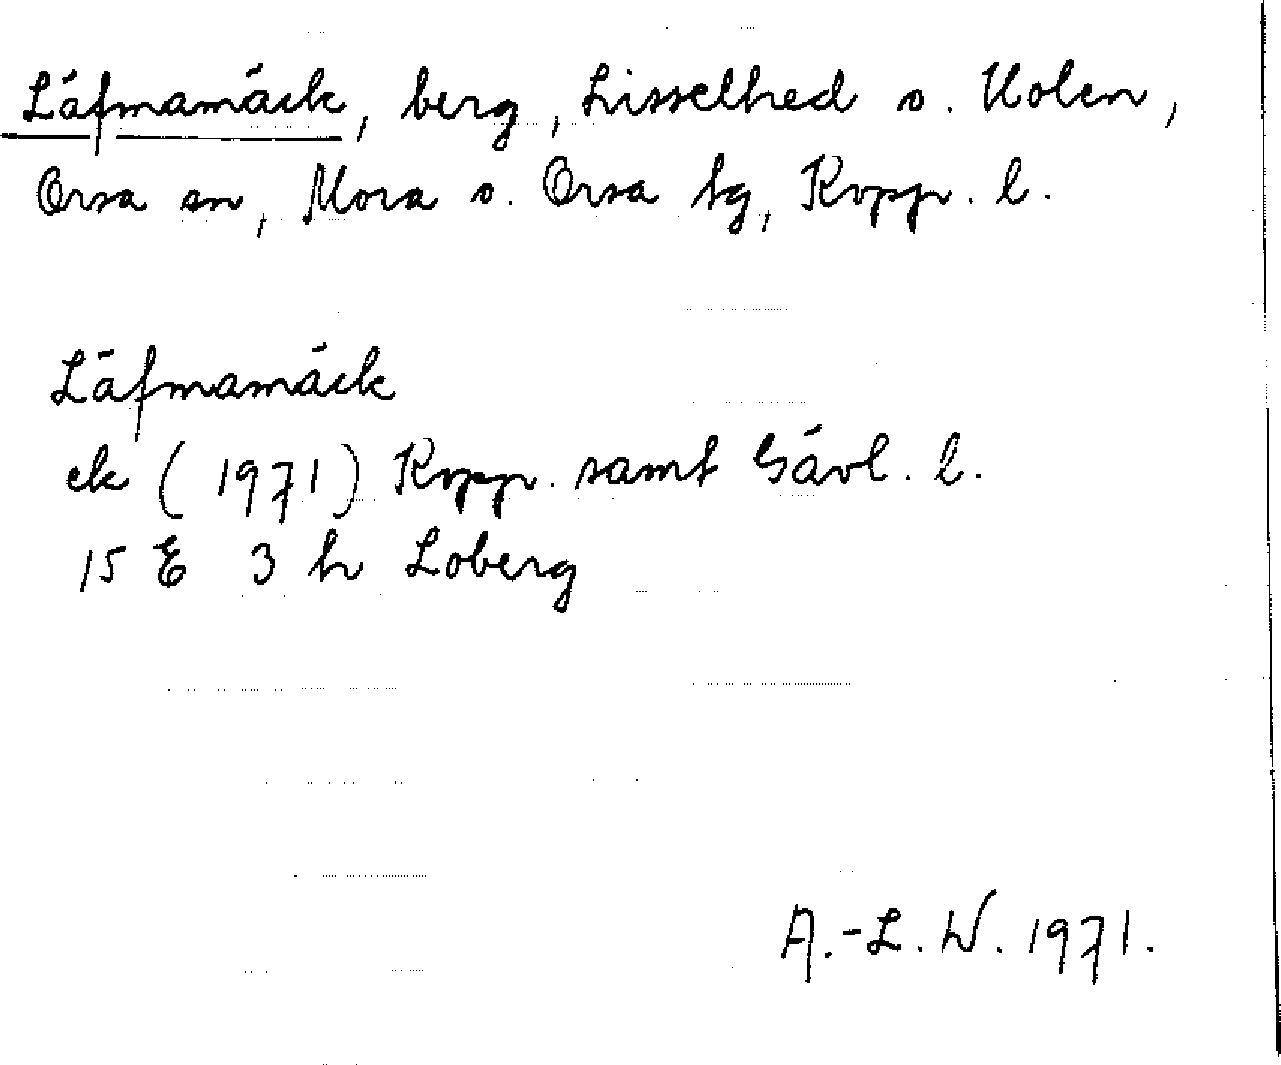 Läfmamäck, berg, Lisselhed o. Holen,
Orsa sn, Mora o. Orsa tg, Kopp. l.
Läfmamäck
ek (1971) Kopp. samt Gävl. l.
15 E 3 h Loberg
A.-L. W. 1971.